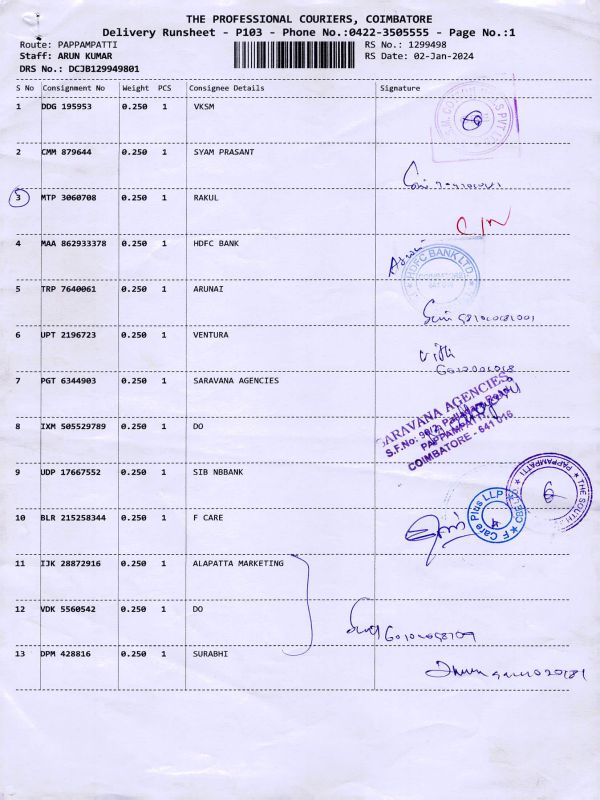 THE PROFESSIONAL COURIERS, COIMBATORE
Delivery Runsheet - P103 - Phone No.:0422-3505555 - Page No.:1
Route: PAPPAMPATTI RS No.: 1299498
Staff: ARUN KUMAR RS Date: 02-Jan-2024
DRS No.: DCJB129949801
S No Consignment No Weight PCS Consignee Details Signature
1 DDG 195953 0.250 1 VKSM
2 CMM 879644 0.250 1 SYAM PRASANT
3 MTP 3060708 0.250 1 RAKUL
4 MAA 862933378 0.250 1 HDFC BANK
HDFC BANK LTD.
COIMBATORE
5 TRP 7640061 0.250 1 ARUNAI
6 UPT 2196723 0.250 1 VENTURA
7 PGT 6344903 0.250 1 SARAVANA AGENCIES
SARAVANA AGENCIES
S.F.No: 90/2, Palladam Road
PAPPAMPATTI,
COIMBATORE - 641 016
8 IXM 505529789 0.250 1 DO
9 UDP 17667552 0.250 1 SIB NBBANK
PAPPAMPATTI ★ THE SOUTH
10 BLR 215258344 0.250 1 F CARE
★ F Care Plus LLP ★
11 IJK 28872916 0.250 1 ALAPATTA MARKETING
12 VDK 5560542 0.250 1 DO
13 DPM 428816 0.250 1 SURABHI